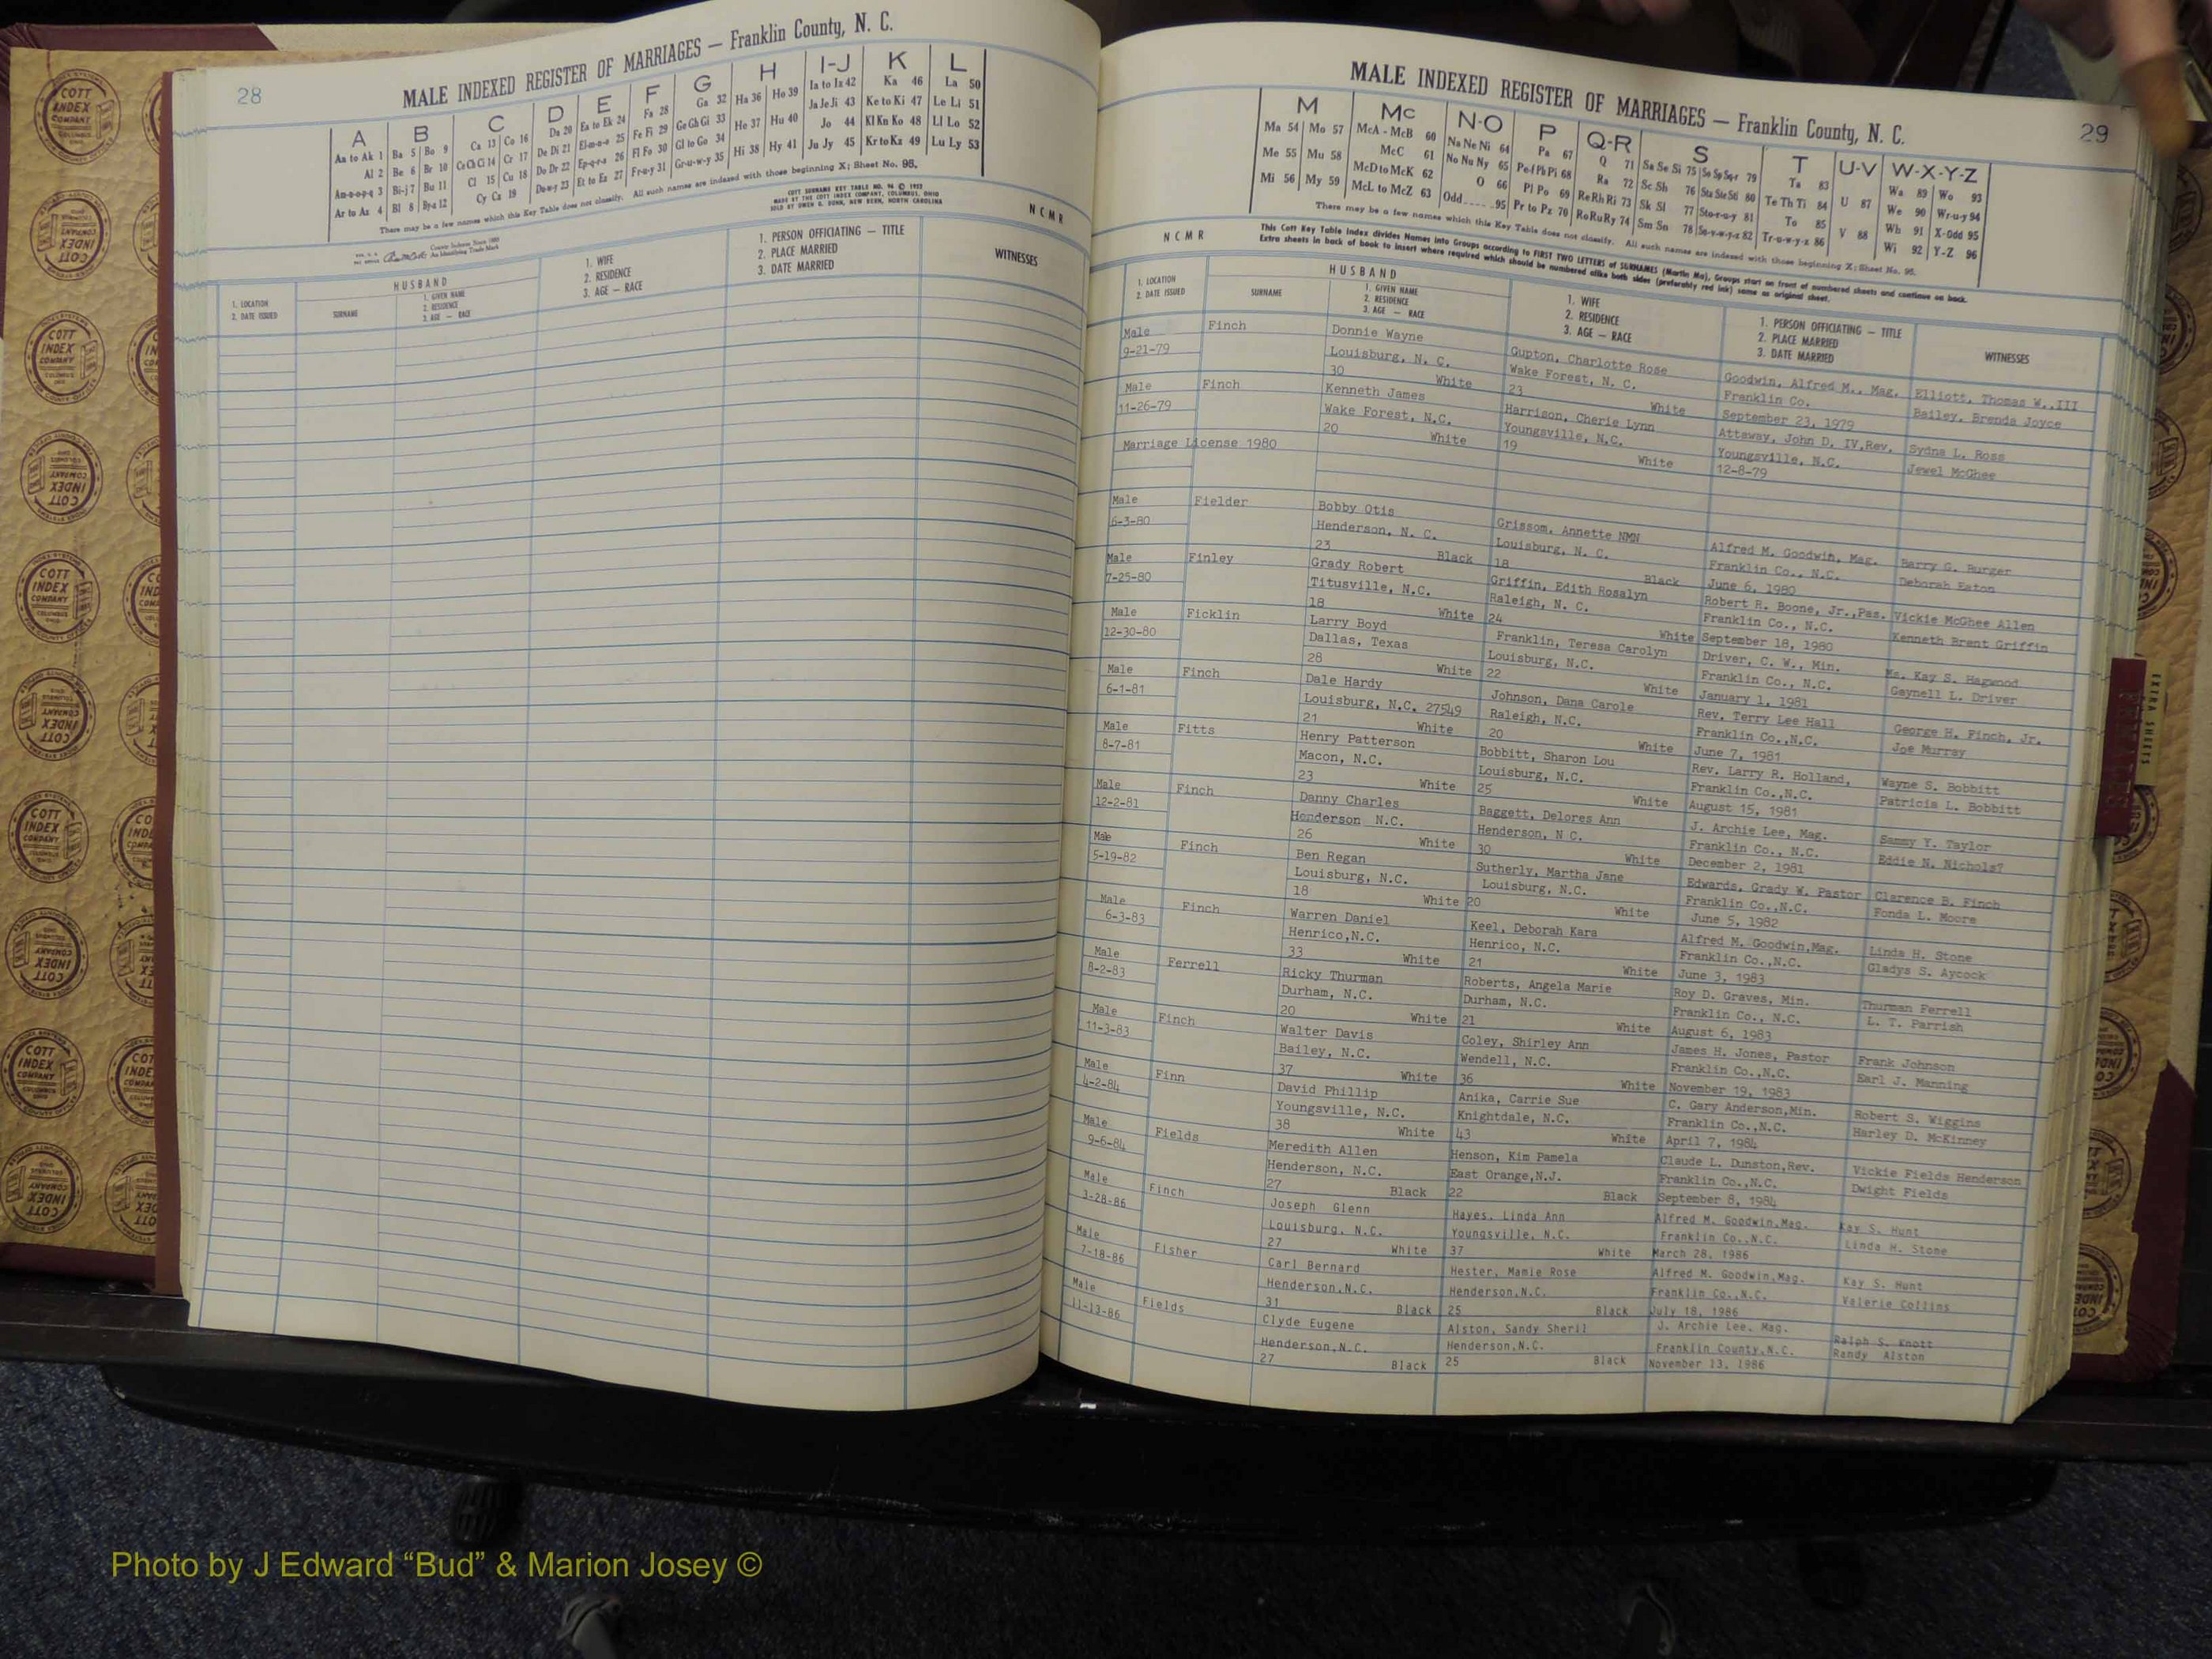 28
MALE INDEXED REGISTER OF MARRIAGES — Franklin County, N. C.
A B C D E F G H I-J K L
Aa to Ak 1 Ba 5 Bo 9 Ca 13 Co 16 Da 20 Ea to Ek 24 Fa 28 Ga 32 Ha 36 Ho 39 Ia to Iz 42 Ka 46 La 50
Al 2 Be 6 Br 10 Ce Ch Ci 14 Cr 17 De Di 21 El-m-n-o 25 Fe Fi 29 Ge Gh Gi 33 He 37 Hu 40 Ja Je Ji 43 Ke to Ki 47 Le Li 51
Am-n-o-p-q 3 Bi-j 7 Bu 11 Cl 15 Cu 18 Do Dr 22 Ep-q-r-s 26 Fl Fo 30 Gl to Go 34 Hi 38 Hy 41 Jo 44 Kl Kn Ko 48 Ll Lo 52
Ar to Az 4 Bl 8 By-z 12 Cy Cz 19 Du-w-y 23 Et to Ez 27 Fr-u-y 31 Gr-u-w-y 35 Ju Jy 45 Kr to Kz 49 Lu Ly 53
There may be a few names which this Key Table does not classify. All such names are indexed with those beginning X; Sheet No. 95.
COTT SURNAME KEY TABLE NO. 96 © 1952
MADE BY THE COTT INDEX COMPANY, COLUMBUS, OHIO
SOLD BY OWEN G. DUNN, NEW BERN, NORTH CAROLINA
N C M R
HUSBAND
1. LOCATION
2. DATE ISSUED
SURNAME
1. GIVEN NAME
2. RESIDENCE
3. AGE — RACE
1. WIFE
2. RESIDENCE
3. AGE — RACE
1. PERSON OFFICIATING — TITLE
2. PLACE MARRIED
3. DATE MARRIED
WITNESSES
29
MALE INDEXED REGISTER OF MARRIAGES — Franklin County, N. C.
M Mc N-O P Q-R S T U-V W-X-Y-Z
Ma 54 Mo 57 McA - McB 60 Na Ne Ni 64 Pa 67 Q 71 Sa Se Si 75 So Sp Sq-r 79 Ta 83 U 87 Wa 89 Wo 93
Me 55 Mu 58 McC 61 No Nu Ny 65 Pe-f Ph Pi 68 Ra 72 Sc Sh 76 Sta Ste Sti 80 Te Th Ti 84 V 88 We 90 Wr-u-y 94
Mi 56 My 59 McD to McK 62 O 66 Pl Po 69 Re Rh Ri 73 Sk Sl 77 Sto-r-u-y 81 To 85 Wh 91 X-Odd 95
McL to McZ 63 Odd 95 Pr to Pz 70 Ro Ru Ry 74 Sm Sn 78 Su-v-w-y-z 82 Tr-u-w-y-z 86 Wi 92 Y-Z 96
There may be a few names which this Key Table does not classify. All such names are indexed with those beginning X; Sheet No. 95.
This Cott Key Table Index divides Names into Groups according to FIRST TWO LETTERS of SURNAMES (Martin Ma), Groups start on front of numbered sheets and continue on back.
Extra sheets in back of book to insert where required which should be numbered alike both sides (preferably red ink) same as original sheet.
N C M R
HUSBAND
1. LOCATION
2. DATE ISSUED
SURNAME
1. GIVEN NAME
2. RESIDENCE
3. AGE — RACE
1. WIFE
2. RESIDENCE
3. AGE — RACE
1. PERSON OFFICIATING — TITLE
2. PLACE MARRIED
3. DATE MARRIED
WITNESSES
Male Finch Donnie Wayne Gupton, Charlotte Rose Goodwin, Alfred M., Mag. Elliott, Thomas W.,III
9-21-79 Louisburg, N. C. Wake Forest, N. C. Franklin Co. Bailey, Brenda Joyce
30 White 23 White September 23, 1979
Male Finch Kenneth James Harrison, Cherie Lynn Attaway, John D, IV,Rev. Sydna L. Ross
11-26-79 Wake Forest, N.C. Youngsville, N.C. Youngsville, N.C. Jewel McGhee
20 White 19 White 12-8-79
Marriage License 1980
Male Fielder Bobby Otis Grissom, Annette NMN Alfred M. Goodwin, Mag. Barry G. Burger
6-3-80 Henderson, N. C. Louisburg, N. C. Franklin Co., N.C. Deborah Eaton
23 Black 18 Black June 6, 1980
Male Finley Grady Robert Griffin, Edith Rosalyn Robert R. Boone, Jr.,Pas. Vickie McGhee Allen
7-25-80 Titusville, N.C. Raleigh, N. C. Franklin Co., N.C. Kenneth Brent Griffin
18 White 24 White September 18, 1980
Male Ficklin Larry Boyd Franklin, Teresa Carolyn Driver, C. W., Min. Ms. Kay S. Hagwood
12-30-80 Dallas, Texas Louisburg, N.C. Franklin Co., N.C. Gaynell L. Driver
28 White 22 White January 1, 1981
Male Finch Dale Hardy Johnson, Dana Carole Rev. Terry Lee Hall George H. Finch, Jr.
6-1-81 Louisburg, N.C. 27549 Raleigh, N.C. Franklin Co.,N.C. Joe Murray
21 White 20 White June 7, 1981
Male Fitts Henry Patterson Bobbitt, Sharon Lou Rev. Larry R. Holland, Wayne S. Bobbitt
8-7-81 Macon, N.C. Louisburg, N.C. Franklin Co.,N.C. Patricia L. Bobbitt
23 White 25 White August 15, 1981
Male Finch Danny Charles Baggett, Delores Ann J. Archie Lee, Mag. Sammy Y. Taylor
12-2-81 Henderson N.C. Henderson, N C. Franklin Co., N.C. Eddie N. Nichols?
26 White 30 White December 2, 1981
Male Finch Ben Regan Sutherly, Martha Jane Edwards, Grady W. Pastor Clarence B. Finch
5-19-82 Louisburg, N.C. Louisburg, N.C. Franklin Co.,N.C. Fonda L. Moore
18 White 20 White June 5, 1982
Male Finch Warren Daniel Keel, Deborah Kara Alfred M. Goodwin,Mag. Linda H. Stone
6-3-83 Henrico,N.C. Henrico, N.C. Franklin Co.,N.C. Gladys S. Aycock
33 White 21 White June 3, 1983
Male Ferrell Ricky Thurman Roberts, Angela Marie Roy D. Graves, Min. Thurman Ferrell
8-2-83 Durham, N.C. Durham, N.C. Franklin Co., N.C. L. T. Parrish
20 White 21 White August 6, 1983
Male Finch Walter Davis Coley, Shirley Ann James H. Jones, Pastor Frank Johnson
11-3-83 Bailey, N.C. Wendell, N.C. Franklin Co.,N.C. Earl J. Manning
37 White 36 White November 19, 1983
Male Finn David Phillip Anika, Carrie Sue C. Gary Anderson,Min. Robert S. Wiggins
4-2-84 Youngsville, N.C. Knightdale, N.C. Franklin Co.,N.C. Harley D. McKinney
38 White 43 White April 7, 1984
Male Fields Meredith Allen Henson, Kim Pamela Claude L. Dunston,Rev. Vickie Fields Henderson
9-6-84 Henderson, N.C. East Orange,N.J. Franklin Co.,N.C. Dwight Fields
27 Black 22 Black September 8, 1984
Male Finch Joseph Glenn Hayes, Linda Ann Alfred M. Goodwin,Mag. Kay S. Hunt
3-28-86 Louisburg, N.C. Youngsville, N.C. Franklin Co.,N.C. Linda H. Stone
27 White 37 White March 28, 1986
Male Fisher Carl Bernard Hester, Mamie Rose Alfred M. Goodwin,Mag. Kay S. Hunt
7-18-86 Henderson,N.C. Henderson,N.C. Franklin Co.,N.C. Valerie Collins
31 Black 25 Black July 18, 1986
Male Fields Clyde Eugene Alston, Sandy Sheril J. Archie Lee, Mag. Ralph S. Knott
11-13-86 Henderson,N.C. Henderson,N.C. Franklin County,N.C. Randy Alston
27 Black 25 Black November 13, 1986
EXTRA SHEETS
COTT INDEX COMPANY
Photo by J Edward “Bud” & Marion Josey ©